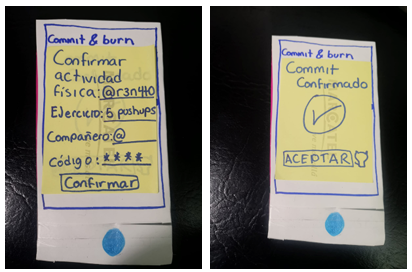 Commit & burn
Confirmar
actividad
física: @r3n440
Ejercicio: 5 pushups
Compañero: @
Código: ****
Confirmar
Commit & burn
Commit
Confirmado
ACEPTAR